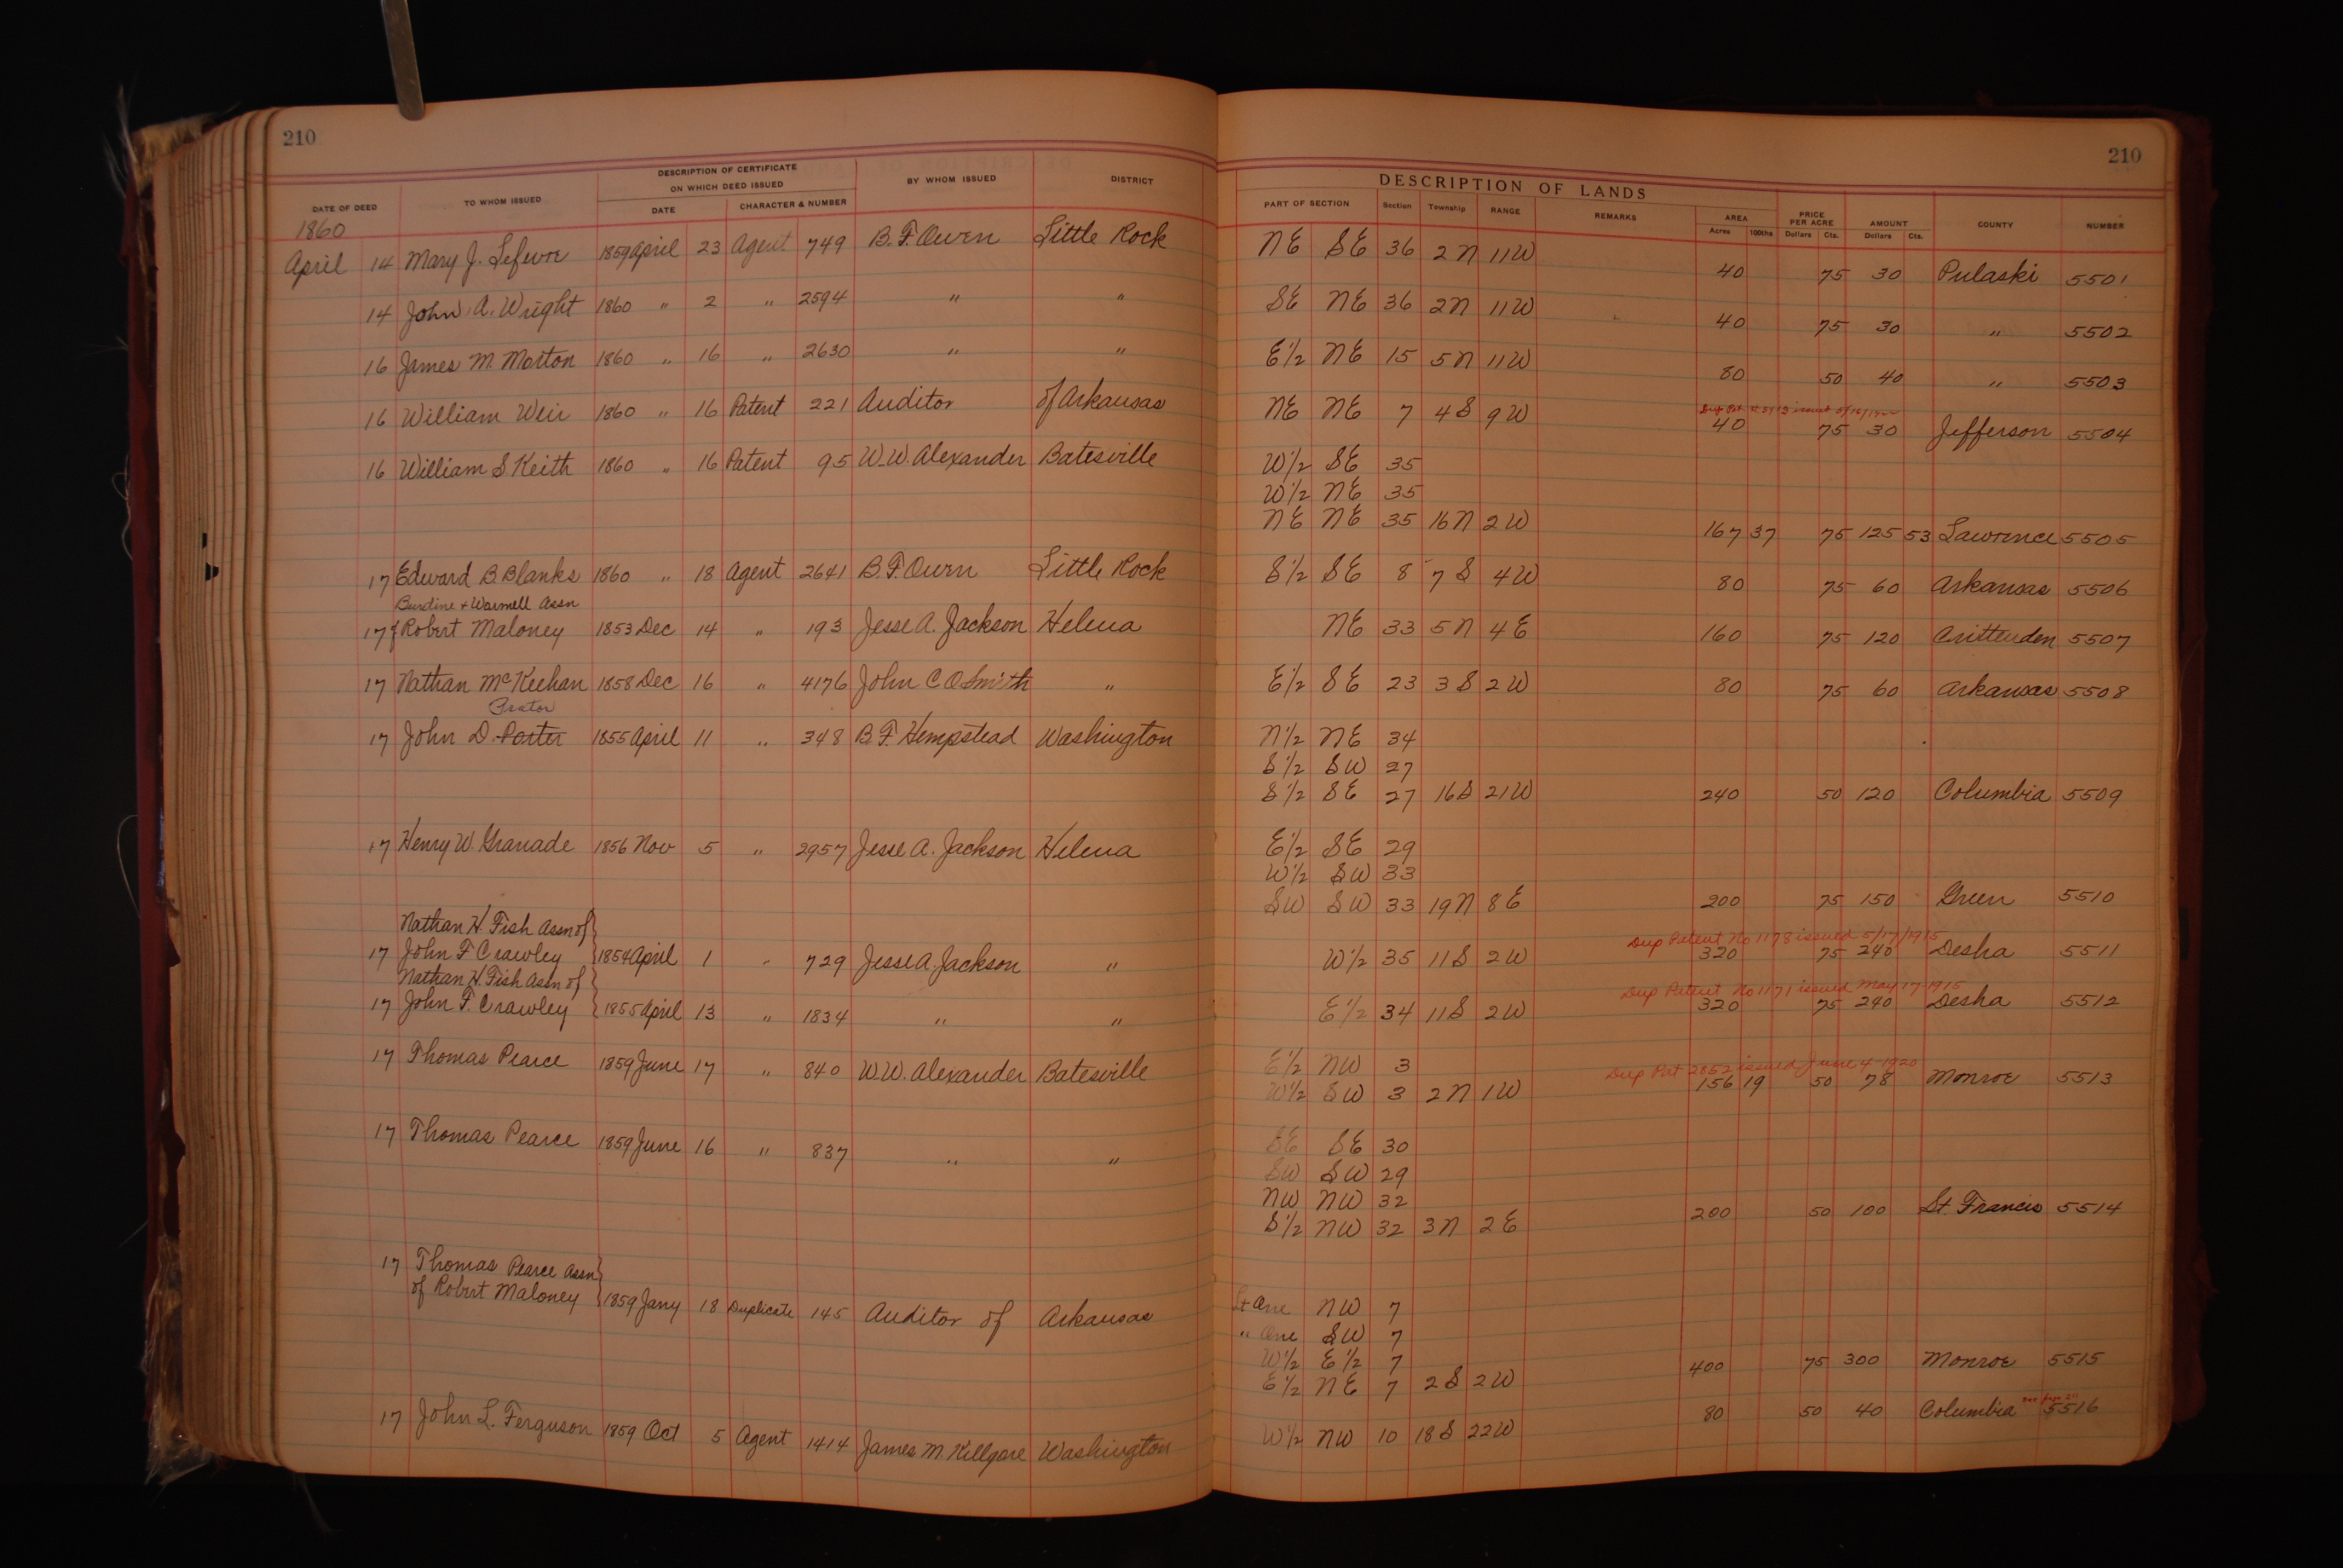 210
210
DATE OF DEED
TO WHOM ISSUED
DESCRIPTION OF CERTIFICATE
ON WHICH DEED ISSUED
DATE
CHARACTER & NUMBER
BY WHOM ISSUED
DISTRICT
DESCRIPTION OF LANDS
PART OF SECTION
Section
Township
RANGE
REMARKS
AREA
Acres 100ths
PRICE
PER ACRE
Dollars Cts.
AMOUNT
Dollars Cts.
COUNTY
NUMBER
1860
April 14 Mary J. Lefevre 1859 April 23 Agent 749 B. F. Owen Little Rock NE SE 36 2N 11W 40 75 30 Pulaski 5501
14 John A. Wright 1860 " 2 " 2594 " " SE NE 36 2N 11W 40 75 30 " 5502
16 James M. Morton 1860 " 16 " 2630 " " E1/2 NE 15 5N 11W 80 50 40 " 5503
16 William Weir 1860 " 16 Patent 221 Auditor of Arkansas NE NE 7 4S 9W 40 75 30 Jefferson 5504
Dup Pat issued
16 William S. Keith 1860 " 16 Patent 95 W. W. Alexander Batesville W1/2 SE 35
W1/2 NE 35
NE NE 35 16N 2W 167 37 75 125 53 Lawrence 5505
17 Edward B. Blanks 1860 " 18 Agent 2641 B. F. Owen Little Rock S1/2 SE 8 7S 4W 80 75 60 Arkansas 5506
Burdine & Warmell Assn
17 { Robert Maloney 1853 Dec 14 " 193 Jesse A. Jackson Helena NE 33 5N 4E 160 75 120 Crittenden 5507
17 Nathan McKeehan 1858 Dec 16 " 4176 John C O Smith " E1/2 SE 23 3S 2W 80 75 60 Arkansas 5508
Prator
17 John D. Porter 1855 April 11 " 348 B. F. Hempstead Washington N1/2 NE 34
S1/2 SW 27
S1/2 SE 27 16S 21W 240 50 120 Columbia 5509
17 Henry W. Granade 1856 Nov 5 " 2957 Jesse A. Jackson Helena E1/2 SE 29
W1/2 SW 33
SW SW 33 19N 8E 200 75 150 Green 5510
Nathan H. Fish Assn of }
Dup Patent No 1178 issued 5/17/1915
17 John F Crawley 1854 April 1 " 729 Jesse A. Jackson " W1/2 35 11S 2W 320 75 240 Desha 5511
Nathan H. Fish Assn of }
Dup Patent No 1171 issued May 17-1915
17 John F. Crawley 1855 April 13 " 1834 " " E1/2 34 11S 2W 320 75 240 Desha 5512
17 Thomas Pearce 1859 June 17 " 840 W. W. Alexander Batesville E1/2 NW 3
Dup Pat 2852 issued June 4-1920
W1/2 SW 3 2N 1W 156 19 50 78 Monroe 5513
17 Thomas Pearce 1859 June 16 " 837 " " SE SE 30
SW SW 29
NW NW 32
S1/2 NW 32 3N 2E 200 50 100 St. Francis 5514
17 Thomas Pearce Assn }
of Robert Maloney 1859 Jany 18 Duplicate 145 Auditor of Arkansas Lt One NW 7
" One SW 7
W1/2 E1/2 7
E1/2 NE 7 2S 2W 400 75 300 Monroe 5515
17 John L. Ferguson 1859 Oct 5 Agent 1414 James M. Killgore Washington W1/2 NW 10 18S 22W 80 50 40 Columbia 5516